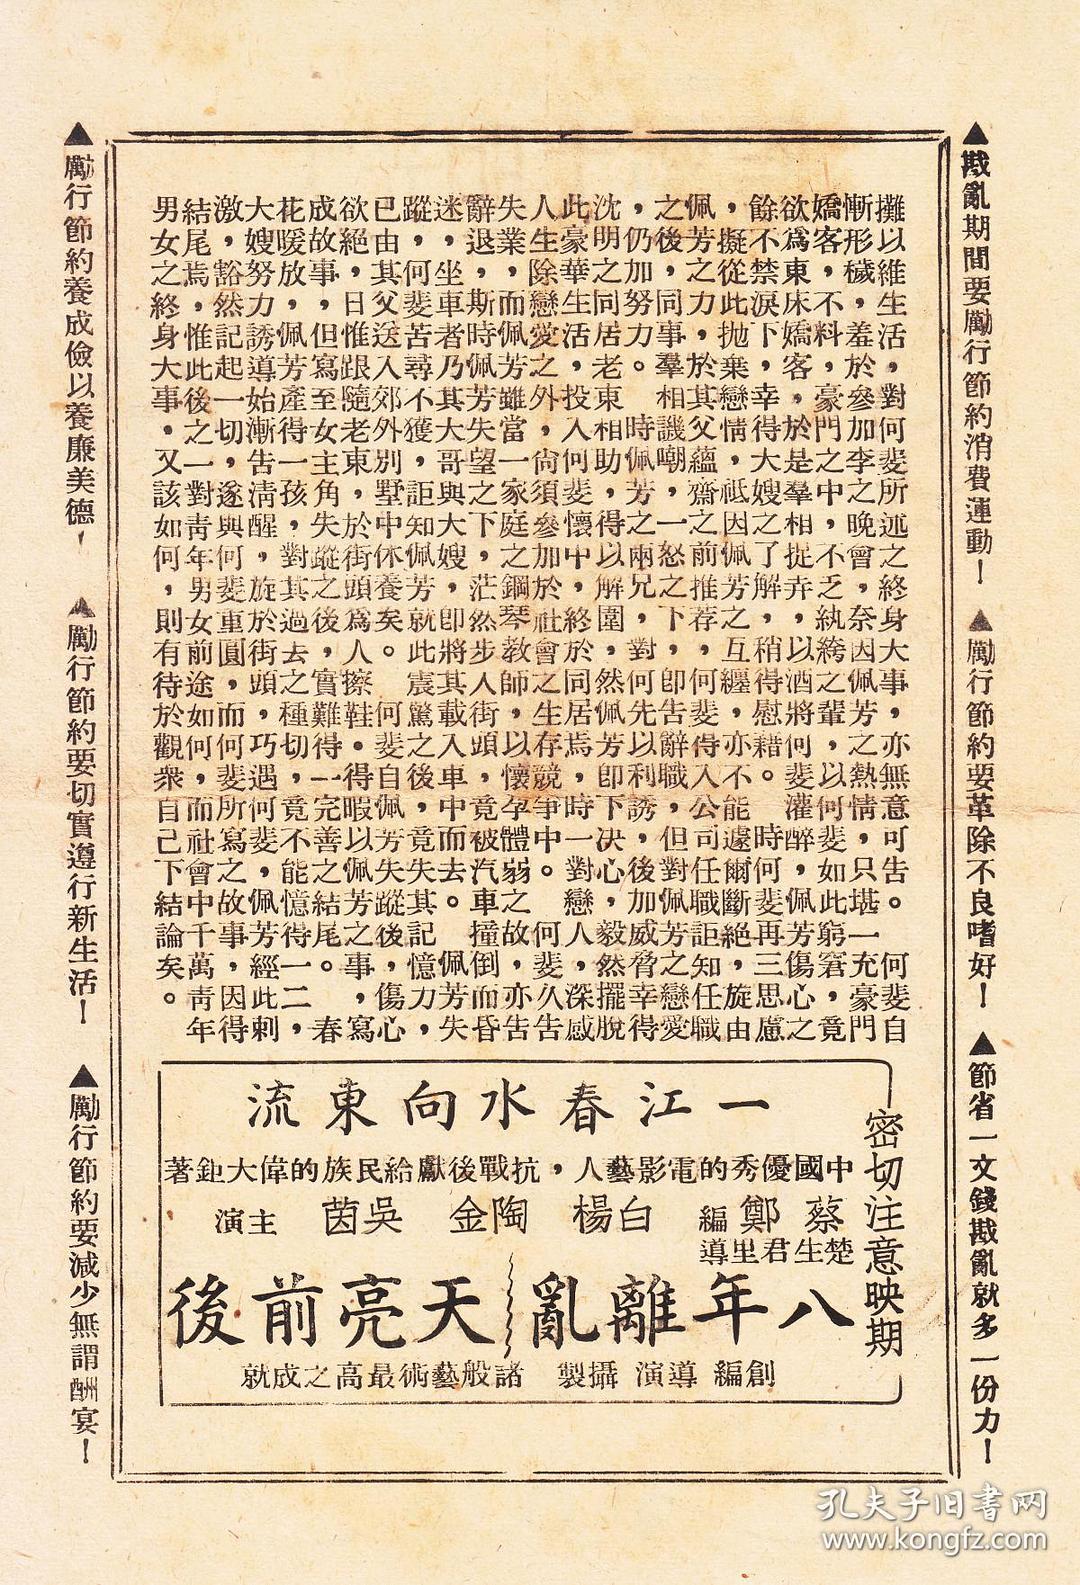 ▲戡亂期間要厲行節約消費運動！　▲厲行節約要革除不良嗜好！　▲節省一文錢戡亂就多一份力！
攤以維生活，對何斐所述之終身大事，亦無意可告。　何斐自
慚形穢，羞於參加李之晚會，奈因佩芳之熱情，只堪一充豪門
嬌客，不料，豪門之中，不乏紈綺之輩，以何斐如此窮窘，竟
欲爲東床嬌客，於是羣相捉弄，以酒將何斐灌醉，佩芳傷心之
餘不禁淚下，幸得大嫂之了解，稍得慰藉。　時何斐再三思慮
，擬從此拋棄戀情，祗因佩芳之互纏，亦不能遽爾斷絕，旋由
佩芳之力，於其父蘊齋之前推荐，何斐得入公司任職詎知任職
之後，同事羣相譏嘲，一怒之下，卽告辭職，但對佩芳之戀愛
，仍加努力。　時佩芳之兩兄，對何先以利誘，後加威脅幸得
沈明之同居老東相助，得以解圍，然佩芳卽下决心，毅然擺脫
此豪華生活，投入何斐懷中，終於同居焉，時一對戀人，深感
人生除戀愛之外，尙須參加於社會之生存競爭中。　何斐久告
失業，而佩芳雖當一家庭之鋼琴敎師，以懷孕體弱之故，亦告
辭退，斯時佩芳失望之下，茫然步入街頭，竟被汽車撞倒而昏
迷，坐車者乃其大哥與大嫂，卽將其載入車中而去。　佩芳失
蹤，何斐苦尋不獲，詎知佩芳就此震驚之後，竟失其記憶力，
已由其父送入郊外別墅中休養矣。　何斐自佩芳失蹤後，傷心
欲絕，日惟跟隨老東，於街頭爲人擦鞋。得暇以佩芳之事，寫
成故事，但寫至女主角失蹤之後，實難得一完善之結尾。　春
花暖放，佩芳產得一孩，對其過去之種切，竟不能憶得一二，
大嫂努力誘導始漸告清醒，旋於街頭，巧遇何斐，佩芳經此刺
激，豁然記起一切，遂與何斐重圓，而何斐所寫之故事，因得
結尾焉，惟此後之一對靑年男女前途如何，而社會中千萬靑年
男女之終身大事・又該如何，則有待於觀衆自己下結論矣。
密切注意映期
一江春水向東流
中國優秀的電影藝人，抗戰後獻給民族的偉大鉅著
蔡楚生　鄭君里　編導　白楊　陶金　吳茵　主演
八年離亂　天亮前後
創編　導演　攝製　諸般藝術最高之成就
▲厲行節約養成儉以養廉美德！　▲勵行節約要切實遵行新生活！　▲勵行節約要減少無謂酬宴！
孔夫子旧書网
www.kongfz.com